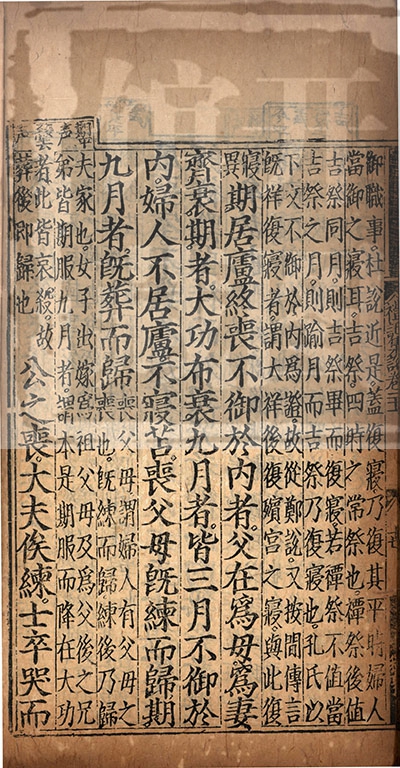 御職事。杜說近是。蓋復寢。乃復其平時婦人
當御之寢耳。吉祭。四時之常祭也。禫祭後值
吉祭同月。則吉祭畢而復寢。若禫祭不值當
吉祭之月。則踰月而吉祭乃復寢也。孔氏以
下文不御於內爲證。故從鄭說。又按間傳言
旣祥復寢者。謂大祥後復殯宮之寢。與此復
寢異 期居廬終喪不御於內者。父在爲母。爲妻
齊衰期者。大功布衰九月者。皆三月不御於
內。婦人不居廬。不寢苫。喪父母。旣練而歸。期
九月者。旣葬而歸 喪父母。謂婦人有父母之
喪也。旣練而歸。練後乃歸
夫家也。女子出嫁。爲祖父母及爲父後之兄
弟皆期服。九月者。謂本是期服而降在大功
者。此皆哀殺。故
葬後卽歸也
公之喪。大夫俟練。士卒哭而